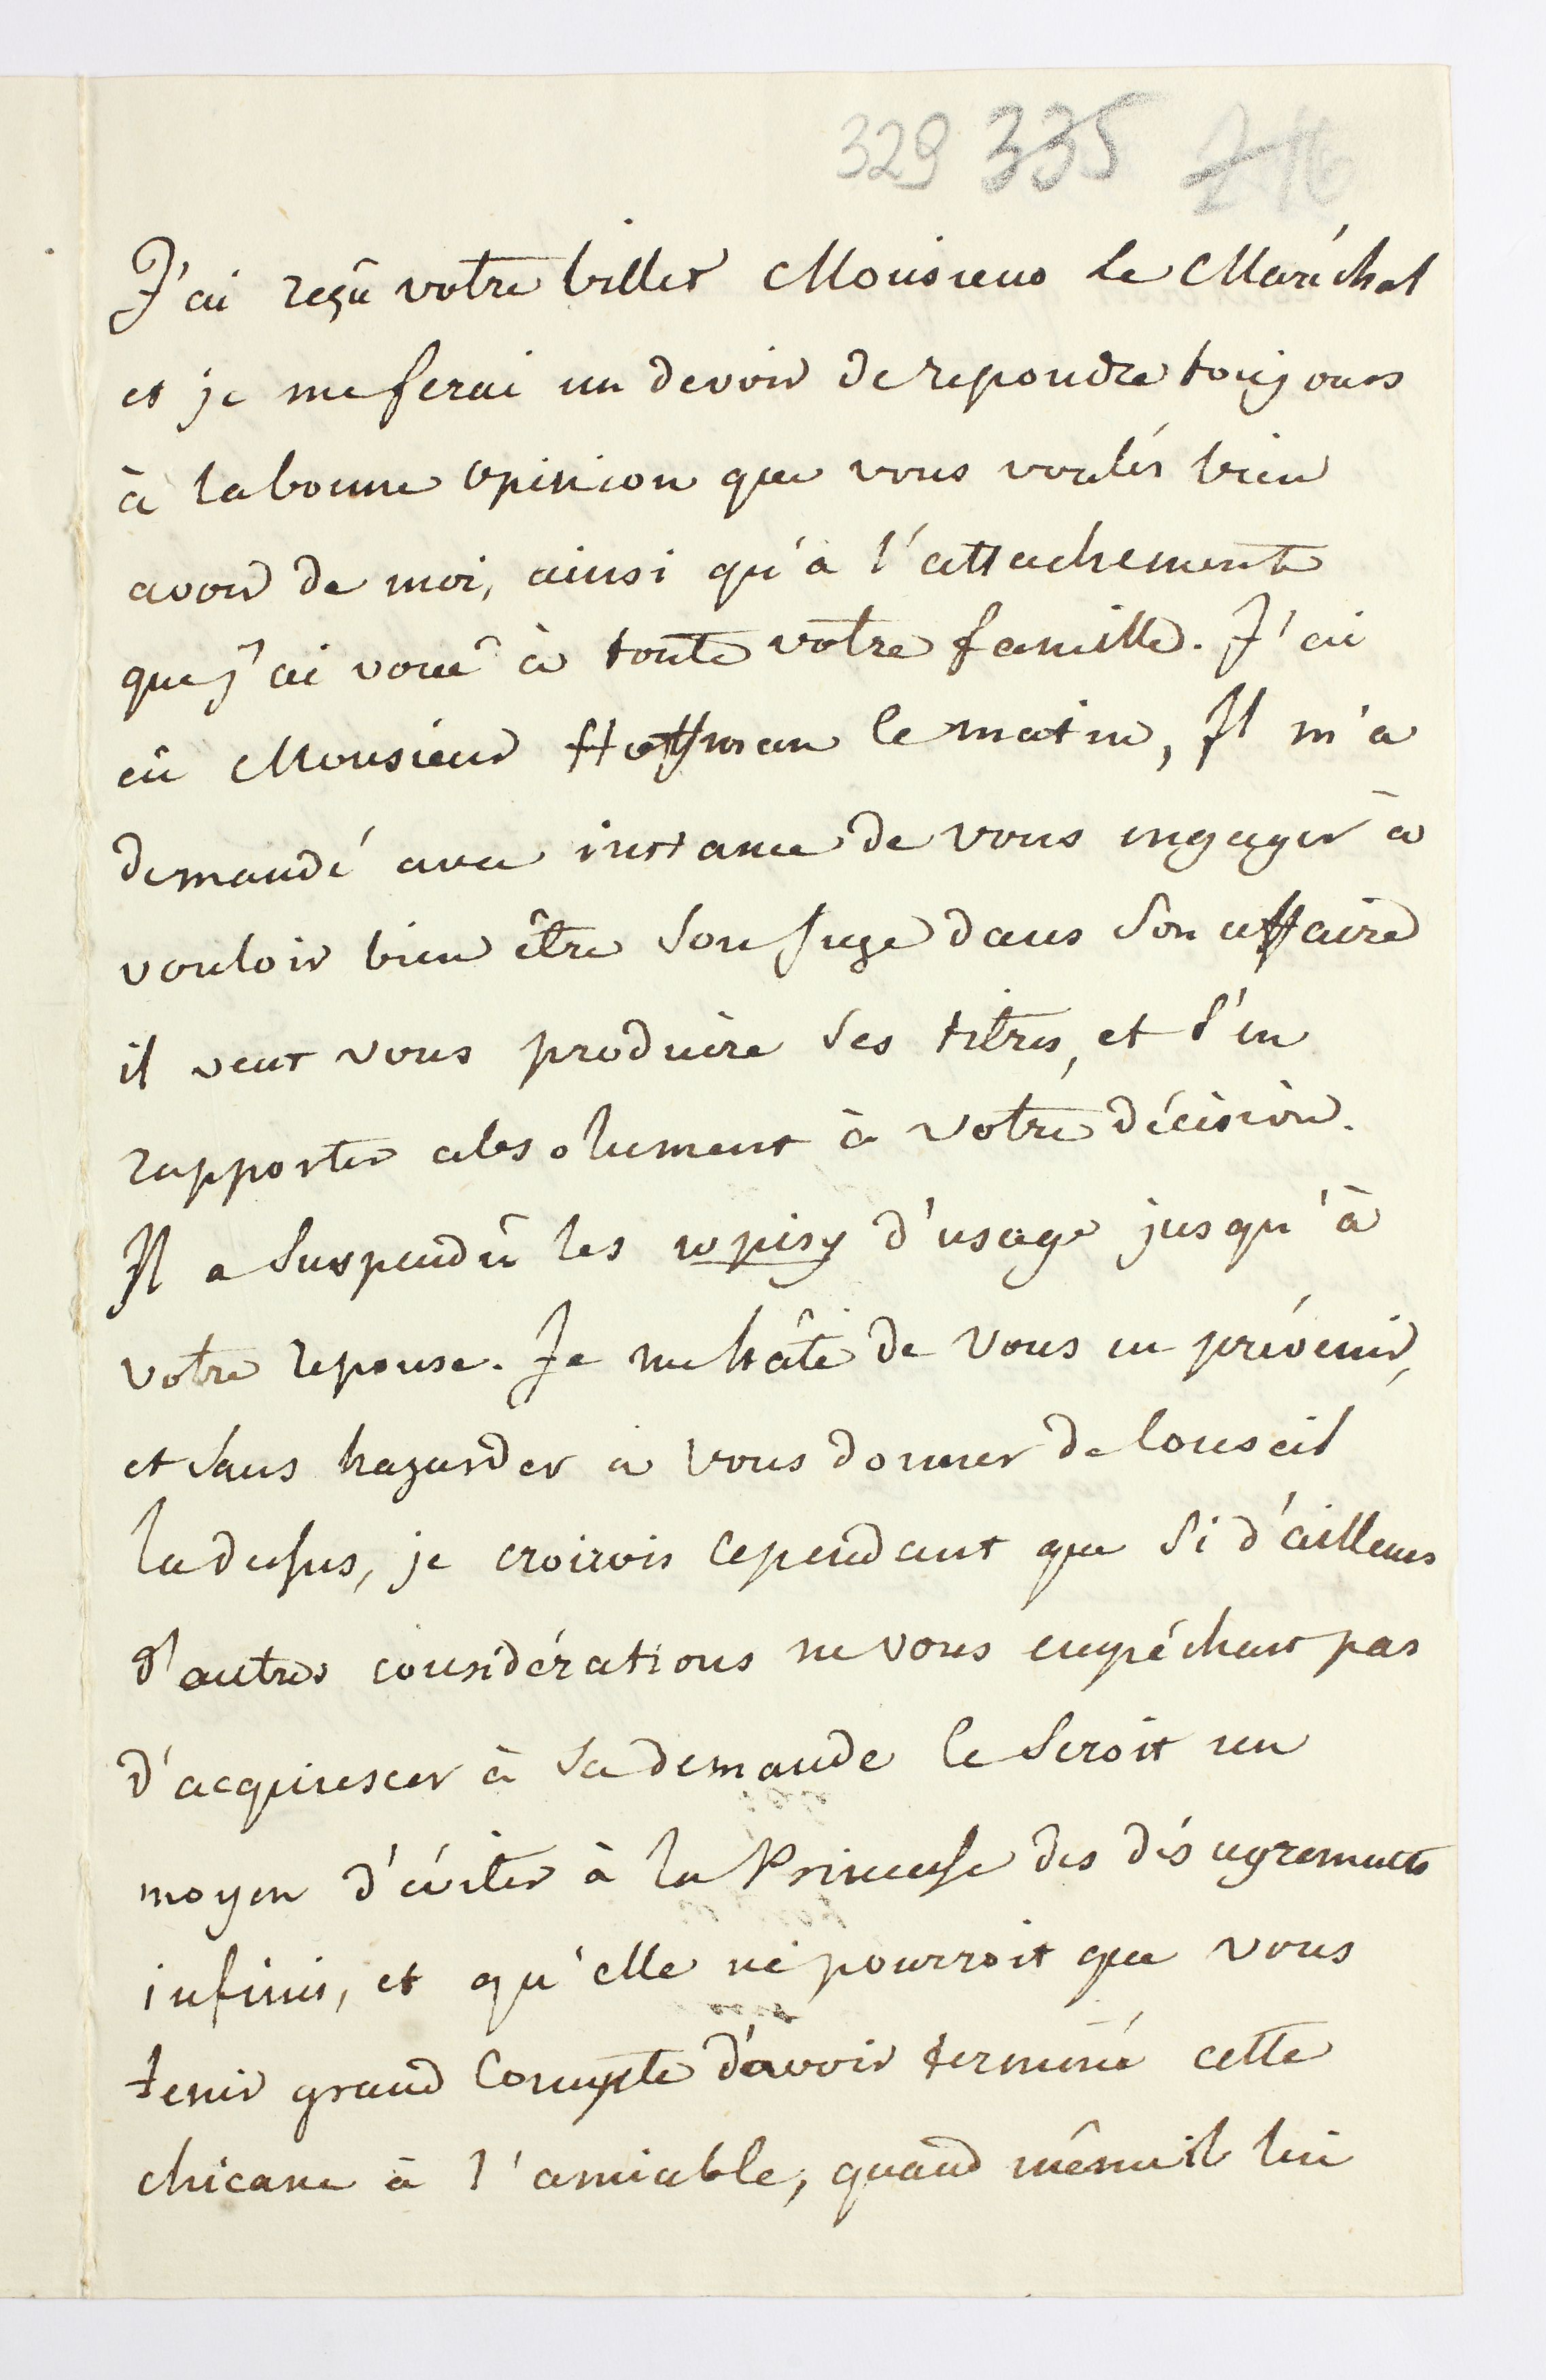 329 335 216
J'ai reçû votre billet Monsieur le Maréchal
et je me ferai un devoir de repondre toujours
à la bonne opinion que vous voulés bien
avoir de moi, ainsi qu'à l'attachement
que j'ai voué à toute votre famille. J'ai
eû Monsieur Hoffman le matin, Il m'a
demandé avec instance de vous engager à
vouloir bien être son juge dans son affaire
il veut vous produire ses titres, et s'en
rapporter absolument à votre décision.
Il a suspendû les wpisy d'usage jusqu'à
votre reponse. Je me hâte de vous en prévenir,
et sans hazarder à vous donner de Conseil
la dessus, je croirois cependant que si d'ailleurs
d'autres considérations ne vous empéchent pas
d'acquiescer à sa demande Ce seroit un
moyen d'éviter à la Princesse des désagrements
infinis, et qu'elle ne pourroit que vous
tenir grand Compte d'avoir terminé cette
chicane à l'amiable, quand même il lui